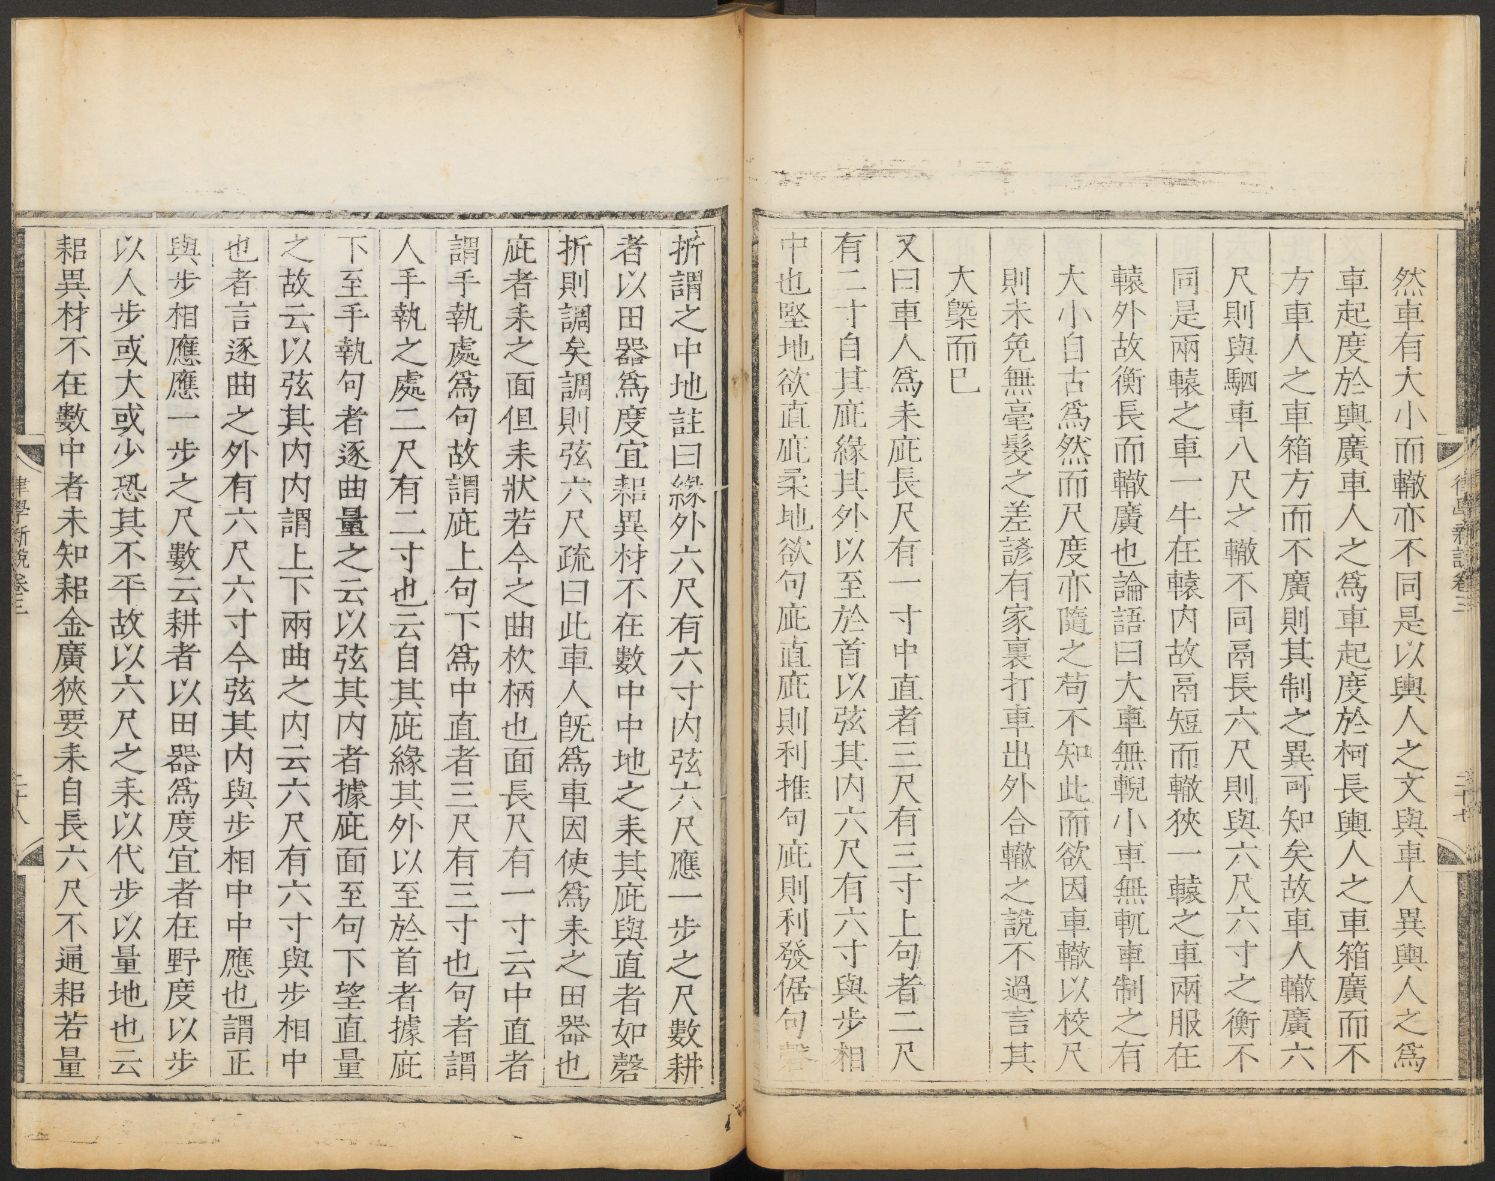 然車有大小而轍亦不同是以輿人之文與車人異輿人之為
車起度於輿廣車人之為車起度於柯長輿人之車箱廣而不
方車人之車箱方而不廣則其制之異可知矣故車人轍廣六
尺則與駟車八尺之轍不同鬲長六尺則與六尺六寸之衡不
同是兩轅之車一牛在轅内故鬲短而轍狹一轅之車兩服在
轅外故衡長而轍廣也論語曰大車無輗小車無軏車制之有
大小自古為然而尺度亦隨之苟不知此而欲因車轍以校尺
則未免無毫髮之差諺有家裏打車出外合轍之說不過言其
大槩而已
又曰車人為耒庛長尺有一寸中直者三尺有三寸上句者二尺
有二寸自其庛緣其外以至於首以弦其内六尺有六寸與步相
中也堅地欲直庛柔地欲句庛直庛則利推句庛則利發倨句磬
折謂之中地註曰緣外六尺有六寸内弦六尺應一步之尺數耕
者以田器為度宜耜異材不在數中中地之耒其庛與直者如磬
折則調矣調則弦六尺疏曰此車人旣為車因使為耒之田器也
庛者耒之面但耒狀若今之曲枚柄也面長尺有一寸云中直者
謂手執處為句故謂庛上句下為中直者三尺有三寸也句者謂
人手執之處二尺有二寸也云自其庛緣其外以至於首者據庛
下至手執句者逐曲量之云以弦其内者據庛面至句下望直量
之故云以弦其内内謂上下兩曲之内云六尺有六寸與步相中
也者言逐曲之外有六尺六寸今弦其内與步相中中應也謂正
與步相應應一步之尺數云耕者以田器為度宜者在野度以步
以人步或大或少恐其不平故以六尺之耒以代步以量地也云
耜異材不在數中者未知耜金廣狹要耒自長六尺不通耜若量
律學新說卷三
二十八